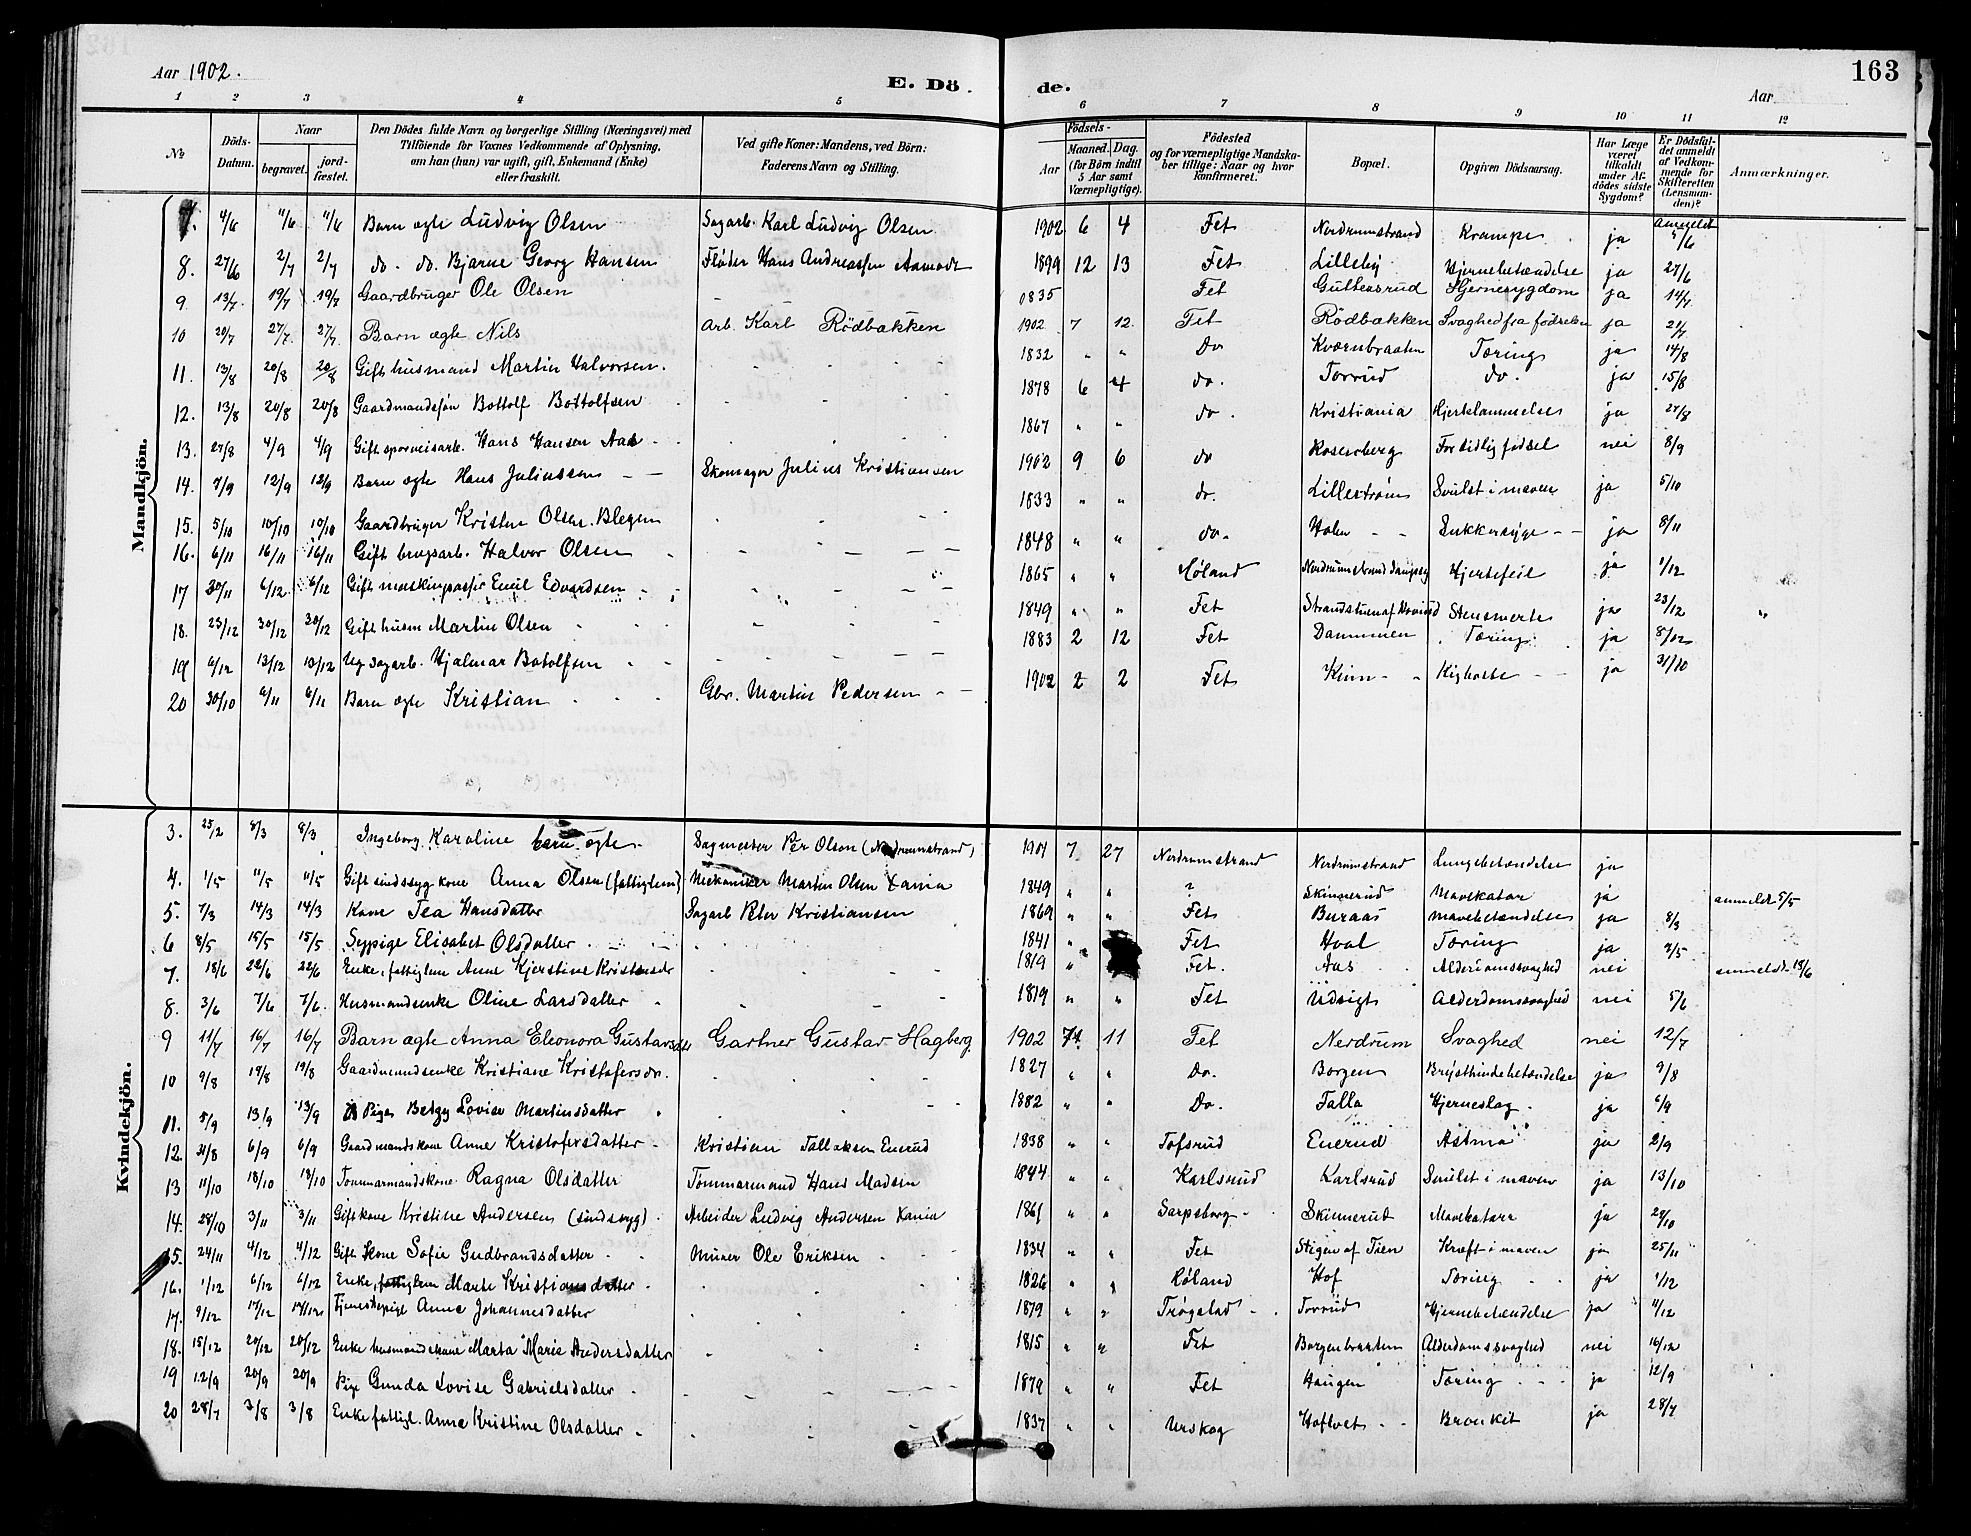 163
Aar 1902.
E. Dö de.
Aar
1 2 3 4 5 6 7 8 9 10 11 12
No
Döds-Datum.
Naar
begravet. jord-fæstet.
Den Dödes fulde Navn og borgerlige Stilling (Næringsvei) med
Tilföiende for Voxnes Vedkommende af Oplysning,
om han (hun) var ugift, gift, Enkemand (Enke)
eller fraskilt.
Ved gifte Koner: Mandens, ved Börn:
Faderens Navn og Stilling.
Födsels-
Aar Maaned. Dag.
(for Börn indtil
5 Aar samt
Værnepligtige).
Födested
og for værnepligtige Mandska-
ber tillige: Naar og hvor
konfirmeret.
Bopæl.
Opgiven Dödsaarsag.
Har Læge
været
tilkaldt
under Af-
dödes sidste
Sygdom?
Er Dödsfal-
det anmeldt
af Vedkom-
mende for
Skifteretten
(Lensman-
den)?
Anmærkninger.
Mandkjön.
7. 4/6 11/6 11/6 Barn ægte Ludvig Olsen Sagarb. Karl Ludvig Olsen 1902 6 4 Fet Nerdrumstrand Krampe ja Anmeldt 5/6
8. 27/6 2/7 2/7 do. do. Bjarne Georg Hansen Fløder Hans Andreassen Aamodt 1899 12 13 Fet Lilleby Hjernebetændelse ja 27/6
9. 13/7 19/7 19/7 Gaardbruger Ole Olsen 1835 Fet Guttersrud Hjernesygdom ja 14/7
10 20/7 27/7 27/7 Barn ægte Nils Arb. Karl Rödbakken 1902 7 12 Fet Rödbækken Svaghed fra fødselen ja 21/7
11. 13/8 20/8 20/8 Gift husmand Martin Halvorsen. 1832 " " Do Kværnbraaten Tæring ja 14/8
12. 13/8 20/8 20/8 Gaardmandsøn Bottolf Bottolfsen 1878 6 4 do. Torrud do. ja 15/8
13. 27/8 4/9 4/9 Gift sporveisarb. Hans Hansen Aas 1867 " " do. Kristiania Hjerklammelse ja 27/8
14. 7/9 12/9 12/9 Barn ægte Hans Juliussen Skomager Julius Kristiansen 1902 9 6 do Rosenberg For tidlig fødsel nei 8/9
15. 5/10 10/10 10/10 Gaardbruger Kristen Olsen Blegen 1833 " " do. Lillestrøm Svulst i maven ja 5/10
16. 6/11 16/11 16/11 Gift brugsarb. Halvor Olsen 1848 " " do. Holen Sukkersyge ja 8/11
17 30/11 6/12 6/12 Gift maskinpasser Emil Edvardsen 1865 " " Høland Nerdrumstrand Dampsag Hjertefeil ja 1/12
18. 23/12 30/12 30/12 Gift husm Martin Olsen 1849 " " Fet Strandstuen af Hovinsd Stensmerte ja 23/12
19 6/12 13/12 13/12 Ug. sagarb. Hjalmar Botolfsen 1883 2 12 Fet Dammen Tæring ja 8/12
20 30/10 6/11 6/11 Barn ægte Kristian Gbr. Martin Pedersen 1902 2 2 Fet Kinn Kighoste ja 31/10
Kvindekjön.
3. 25/2 8/3 8/3 Ingeborg Karoline barn ægte Sagmester Per Olson (Nerdrumstrand) 1901 7 27 Nerdrumstrand Nerdrumstrand Lungebetændelse ja
4. 1/5 11/5 11/5 Gift sindssyg kone Anna Olsen (fattiglem) Mekaniker Martin Olsen Xania 1849 " " ? Skinnerud Mavekatar ja anmeldt 5/5
5. 7/3 14/3 14/3 Kone Tea Hansdatter Sagarb Peter Kristiansen 1869 " " Fet Buraas Mavebetændelse ja 8/3
6 8/5 15/5 15/5 Sypige Elisabet Olsdatter 1841 " Fet Hval Tæring ja 9/5
7. 18/6 22/6 22/6 Enke, fattiglem Anne Kjerstine Kristensdr 1819 " Fet. Aas Alderdomssvaghed nei anmeldt 18/6
8. 3/6 7/6 7/6 Husmandsenke Oline Larsdatter 1819 " " Fet Udsigt Alderdomssvaghed nei 5/6
9 11/7 16/7 16/7 Barn ægte Anna Eleonora Gustavsdtr Gartner Gustav Hagberg 1902 74 11 Fet Nerdrum Svaghed nei 12/7
10 9/8 19/8 19/8 Gaardmandsenke Kristiane Kristofersdr. 1827 " " Do. Borgen Brysthindebetændelse ja 9/8
11. 5/9 13/9 13/9 Pige Betzy Lovise Martinsdatter 1882 " " Do. Falla Hjerneslag ja 6/9
12. 31/8 6/9 6/9 Gaardmandskone Anne Kristofersdatter Kristian Tallaksen Enerud 1838 " " Tofsrud Enerud Astma ja 2/9
13 11/10 18/10 18/10 Tømmermandskone Ragna Olsdatter Tømmermand Hans Madsen 1844 " " Karlsrud Karlsrud Svulst i maven ja 13/10
14. 28/10 3/11 3/11 Gift kone Kristine Andersen (sindssyg) Arbeider Ludvig Andersen Xania 1861 " " Sarpsborg Skinnerud Mavekatarr ja 29/10
15. 24/11 4/12 4/12 Gift kone Sofie Gudbrandsdatter Murer Ole Eriksen 1834 " " Fet Stigen af Tien Kræft i maven ja 25/11
16. 1/12 6/12 6/12 Enke, fattiglem Marte Kristiansdatter 1826 " " Høland Hof Tæring ja 1/12
17. 9/12 17/12 17/12 Tjenestepige Anna Johannesdatter 1879 " " Trøgstad Torrud Hjernebetændelse ja 11/12
18. 15/12 20/12 20/12 Enke husmandskone Marta Marie Andersdatter 1815 " " Fet Borgenbraaten Alderdomssvaghed nei 16/12
19 12/9 20/9 20/9 Pige Gunda Lovise Gabrielsdatter 1879 " " Fet Haugen Tæring ja 12/9
20 28/7 3/8 3/8 Enke fattigl. Anna Kristine Olsdatter 1837 " " Urskog Hoftvet Bronkit ja 28/7